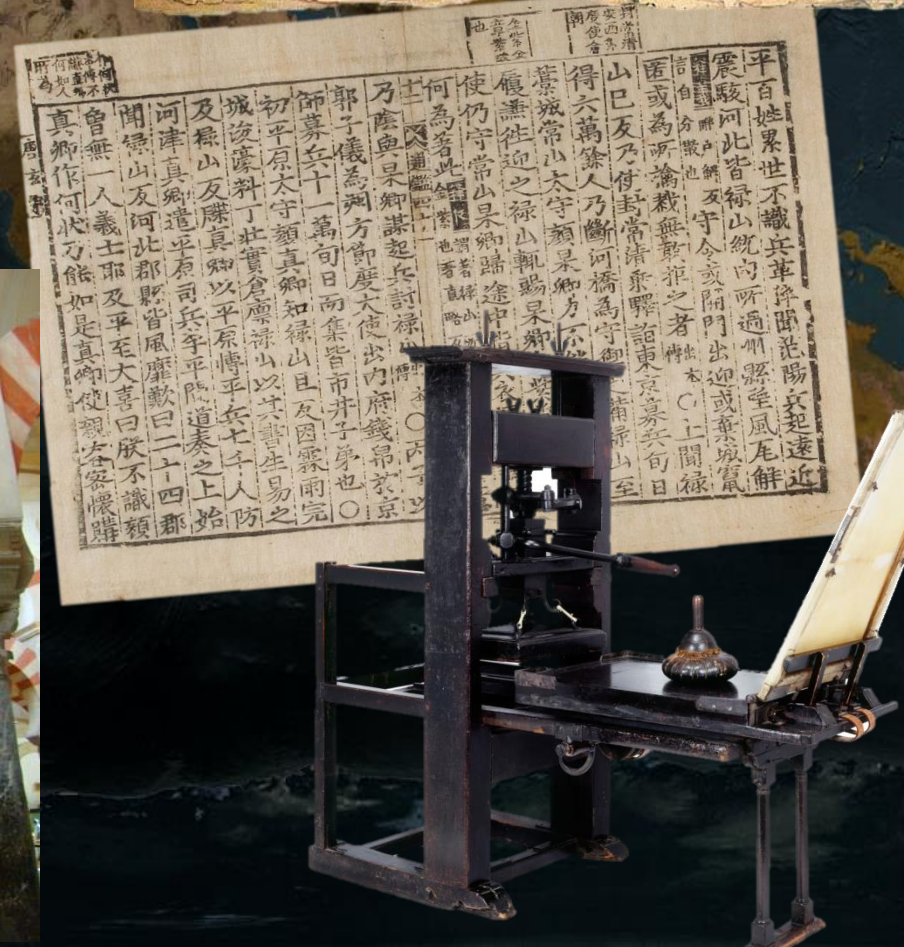 平百姓累世不識兵革倅聞范陽兵起遠近
震駭河北皆禄山統內所過州縣望風瓦解
言自分散也守令或開門出迎或棄城竄
匿或為所擒戮無敢拒之者出本傳○上聞禄
山已反乃使封常清乘驛詣東京募兵旬日
得六萬餘人乃斷河橋為守禦備禄山至
藁城常山太守顏杲卿力不
履謙往迎之禄山輒賜杲卿
使仍守常山杲卿歸途中
何為著此
通鑑四十
乃陰與杲卿謀起兵討禄○丙子以
郭子儀為朔方節度大使出內府錢帛於京
師募兵十一萬旬日而集皆市井子弟也○
初平原太守顏真卿知禄山且反因霖雨完
城浚濠料丁壯實倉廩禄山以其書生易之
及禄山反牒真卿以平原博平兵七千人防
河津真卿遣平原司兵李平間道奏之上始
聞禄山反河北郡縣皆風靡歎曰二十四郡
曾無一人義士耶及平至大喜曰朕不識顏
真卿作何狀乃能如是真卿使親客密懷購